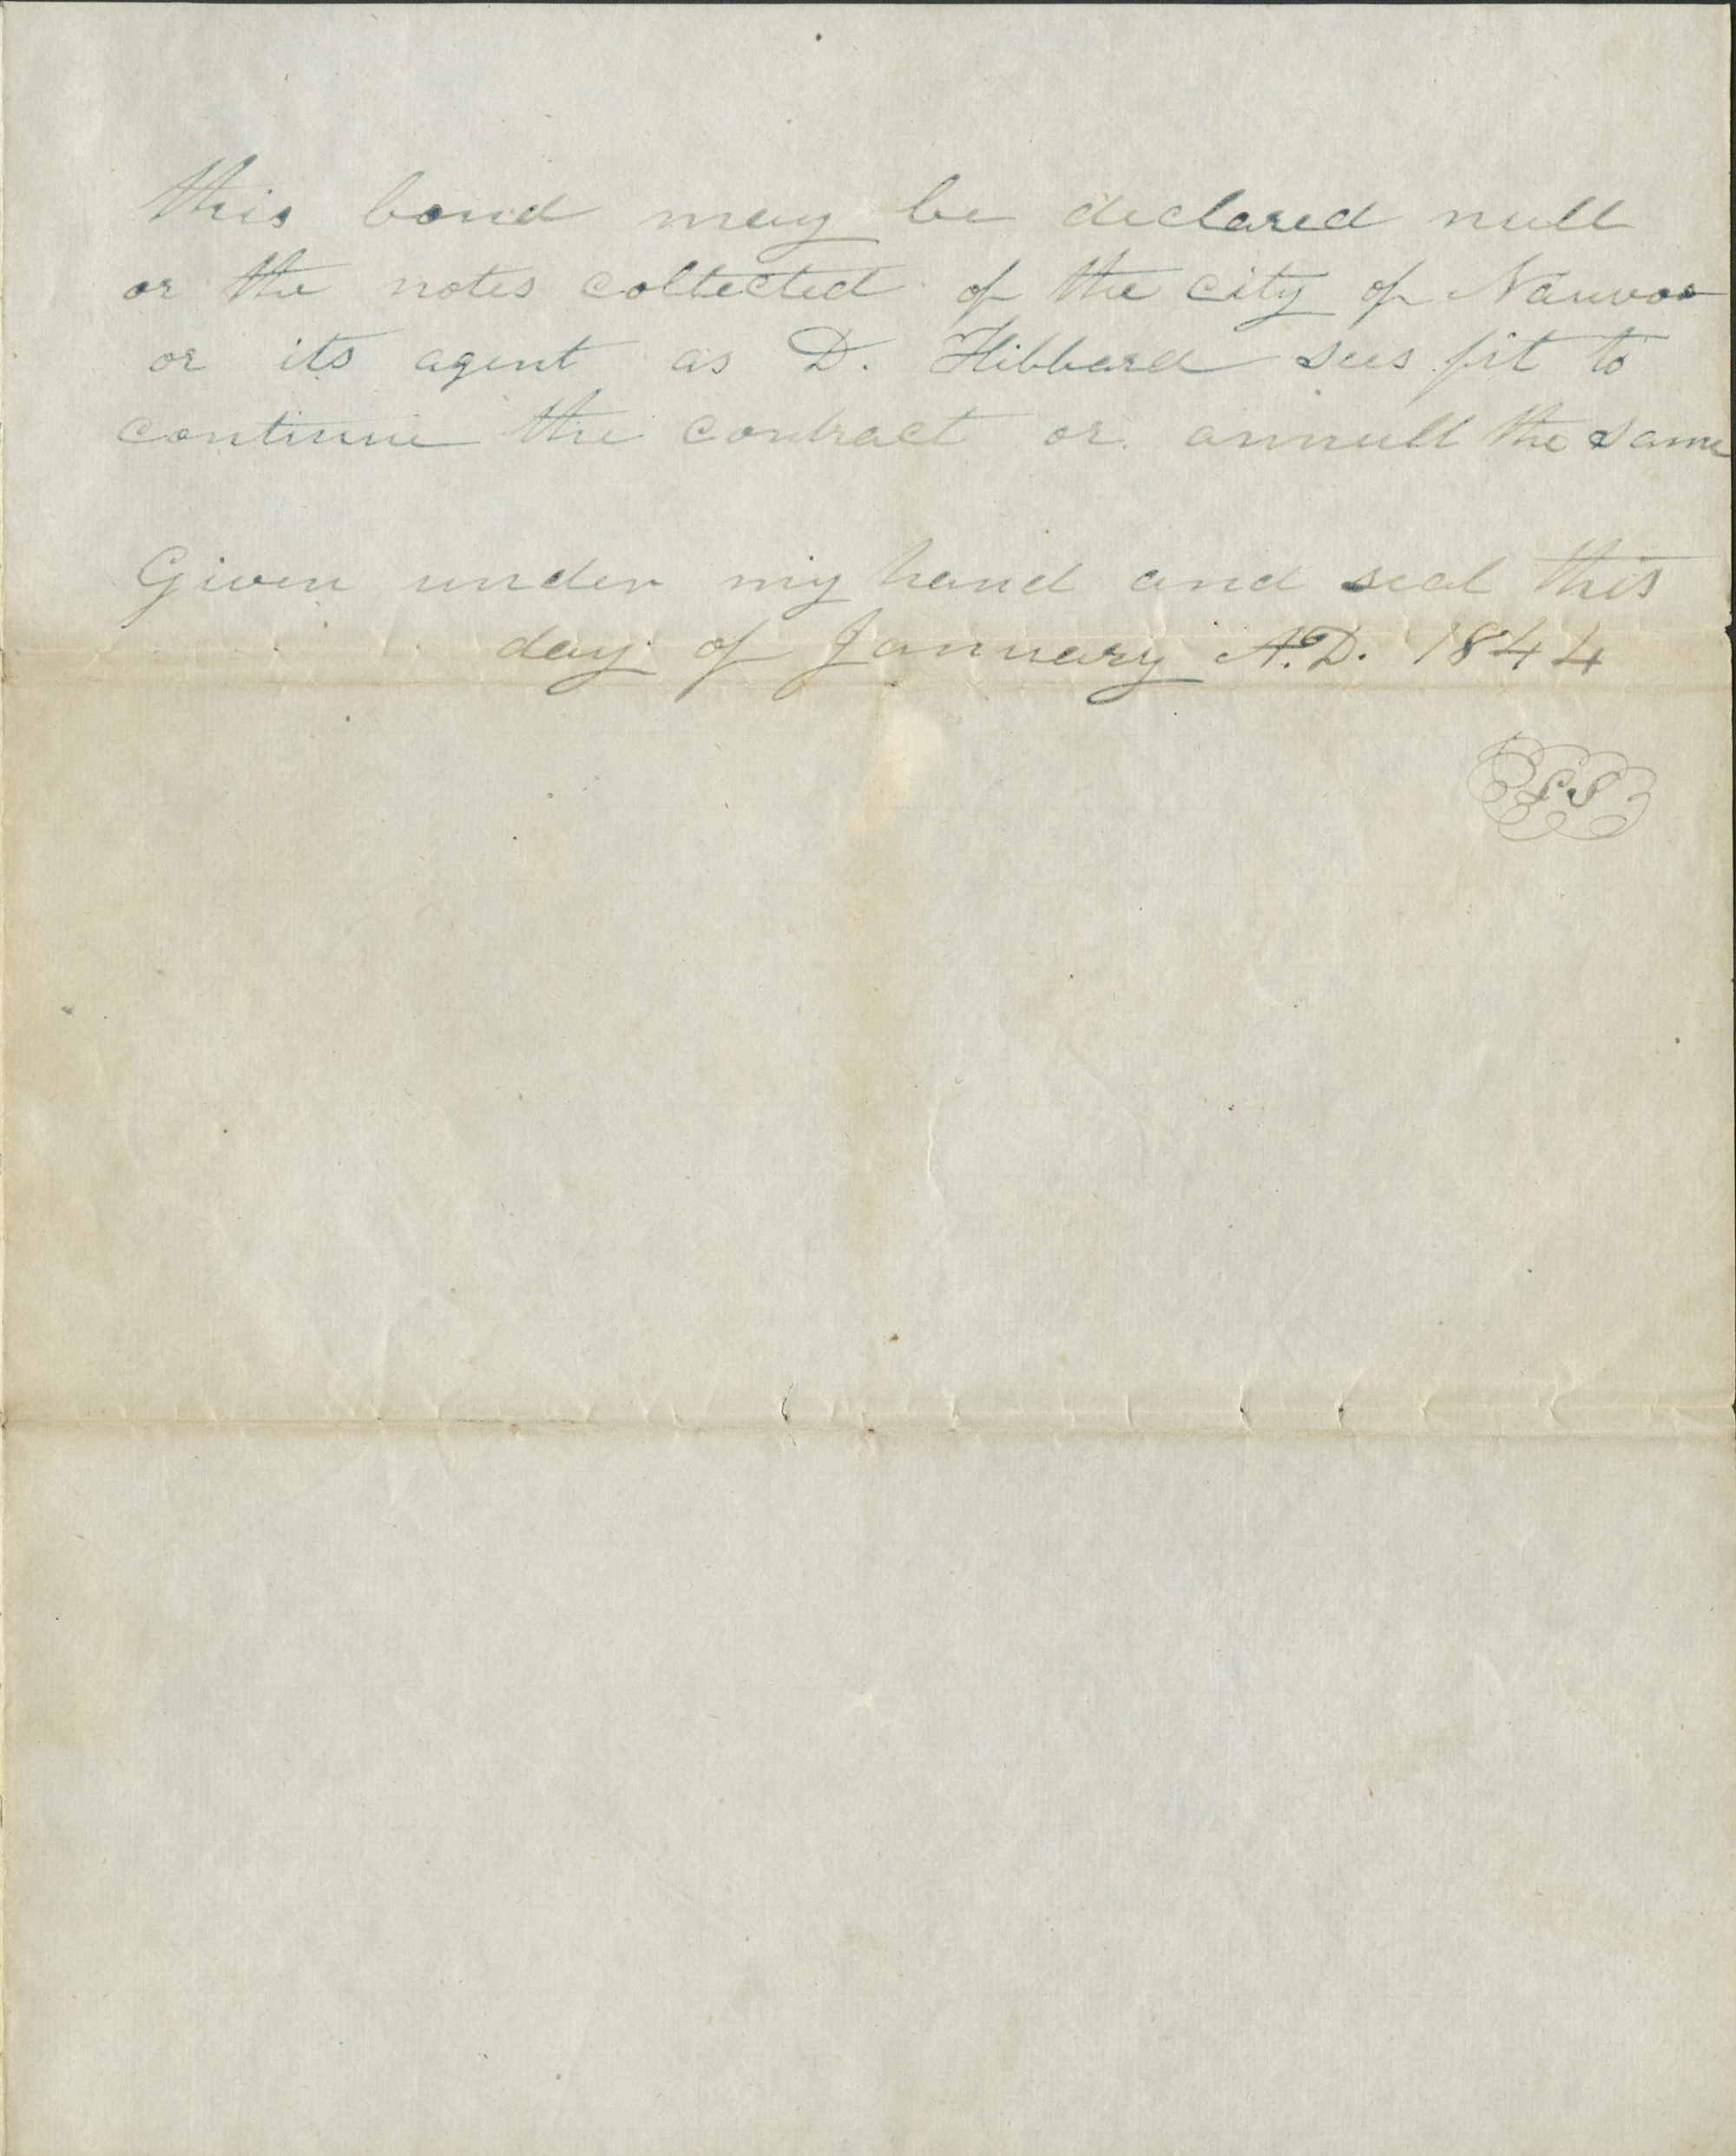 this bond may be declared null
or the notes collected of the city of Nauvoo
or its agent as D. Hibbard sees fit to
continue the contract or annull the same
Given under my hand and seal this
day of January A.D. 1844
LS